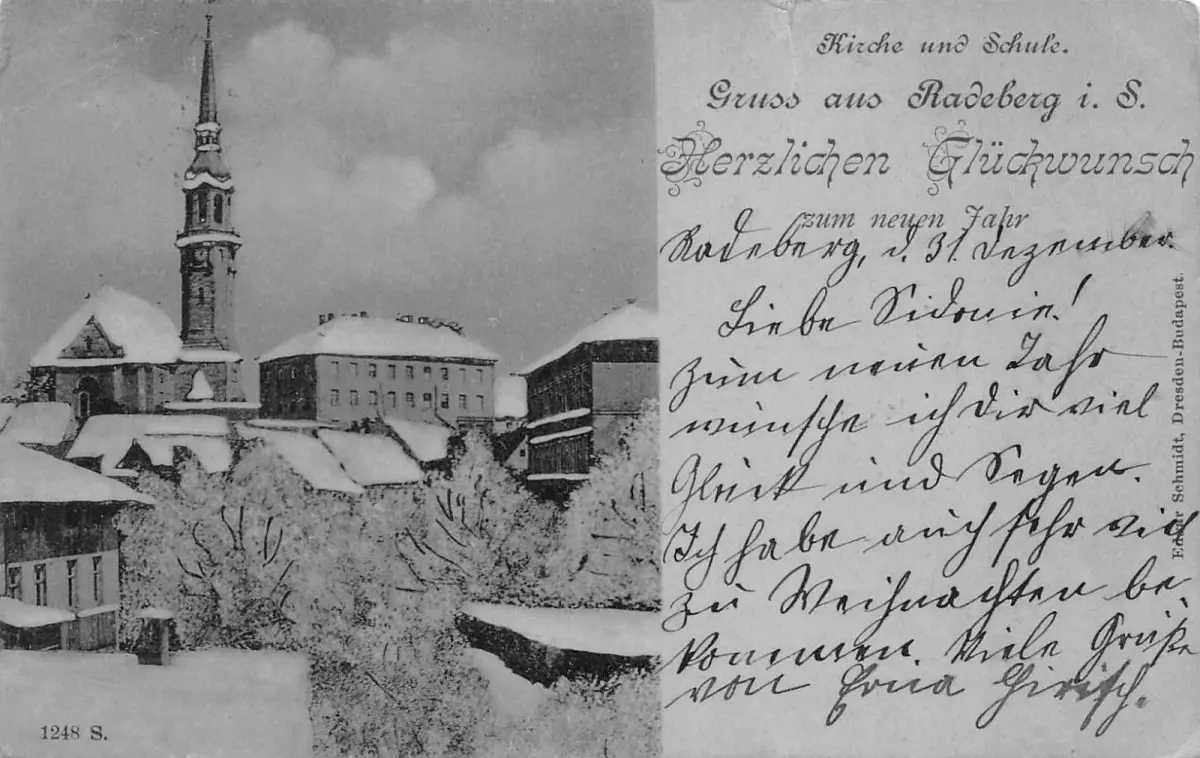 Kirche und Schule.
Gruss aus Radeberg i. S.
Herzlichen Glückwunsch
zum neuen Jahr
Radeberg, d. 31. Dezember.
Liebe Sidonie!
Zum neuen Jahr
wünsche ich Dir viel
Glück und Segen.
Ich habe auch sehr viel
zu Weihnachten be-
kommen. Viele Grüße
von Erna
Schmidt, Dresden-Budapest.
1248 S.